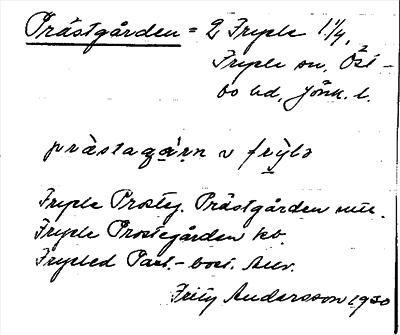 Prästgården = 2 Fryele 1 1/4,
Fryele sn, Öst-
bo hd, Jönk. l.
prästagạ̊rn v frỳlə
Fryele Prosteg. Prästgården
Fryele Prostegården kb.
Fryeled Past.- bost. Anv.
Fritz Andersson 1930